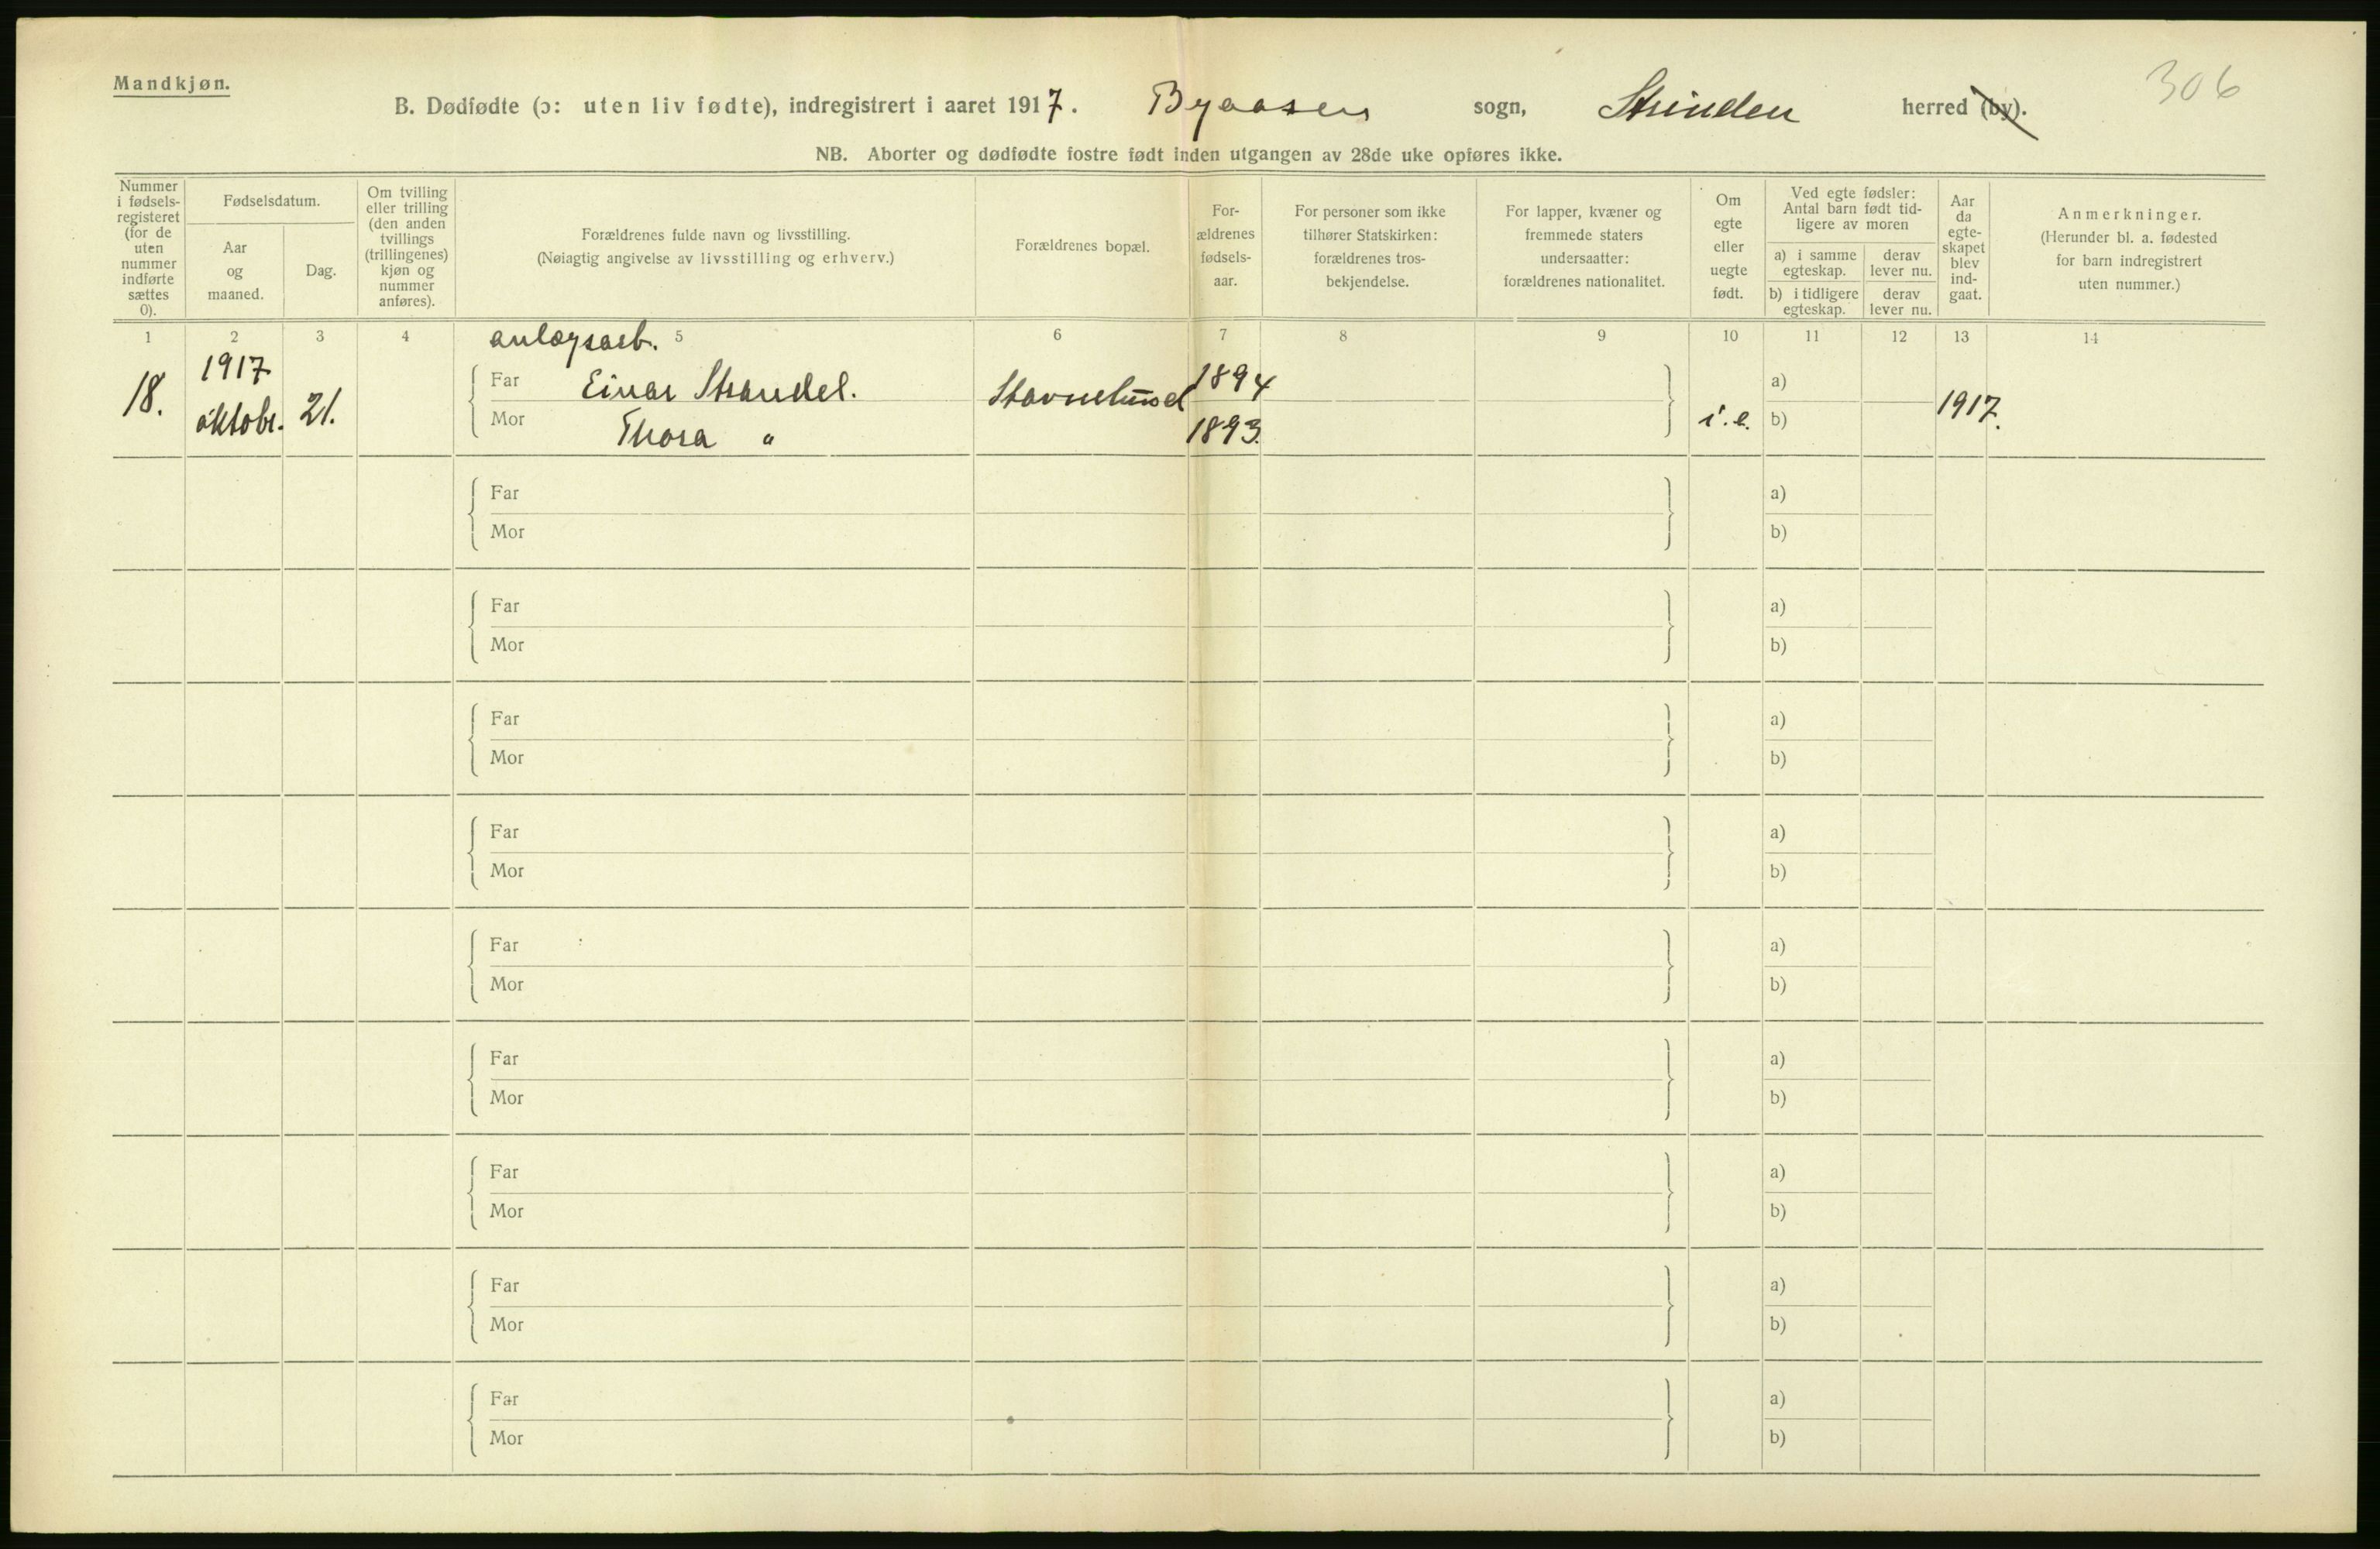 Mandkjøn.
306
B. Dødfødte (ɔ: uten liv fødte), indregistrert i aaret 1917. Byaasen sogn, Strinden herred (by).
NB. Aborter og dødfødte fostre født inden utgangen av 28de uke opføres ikke.
Nummer
i fødsels-
registeret
(for de
uten
nummer
indførte
sættes
0).
Fødselsdatum.
Aar
og
maaned.
Dag.
Om tvilling
eller trilling
(den anden
tvillings
(trillingenes)
kjøn og
nummer
anføres).
Forældrenes fulde navn og livsstilling.
(Nøiagtig angivelse av livsstilling og erhverv.)
Forældrenes bopæl.
For-
ældrenes
fødsels-
aar.
For personer som ikke
tilhører Statskirken:
forældrenes tros-
bekjendelse.
For lapper, kvæner og
fremmede staters
undersaatter:
forældrenes nationalitet.
Om
egte
eller
uegte
født.
Ved egte fødsler:
Antal barn født tid-
ligere av moren
a) i samme
egteskap.
derav
lever nu.
b) i tidligere
egteskap.
derav
lever nu.
Aar
da
egte-
skapet
blev
ind-
gaat.
Anmerkninger.
(Herunder bl. a. fødested
for barn indregistrert
uten nummer.)
1 2 3 4 5 6 7 8 9 10 11 12 13 14
anlægsarb.
18. 1917 oktobr. 21.
Far Einar Strandel. Stavnelund 1894 a)
Mor Thora " 1893. i.e. b) 1917.
Far a)
Mor b)
Far a)
Mor b)
Far a)
Mor b)
Far a)
Mor b)
Far a)
Mor b)
Far a)
Mor b)
Far a)
Mor b)
Far a)
Mor b)
Far a)
Mor b)